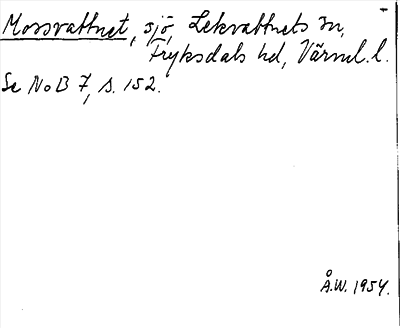 Mossvattnet, sjö, Lekvattnets sn,
Fryksdals hd, Värml. l.
Se NoB 7, s. 152.
Å.W. 1954.